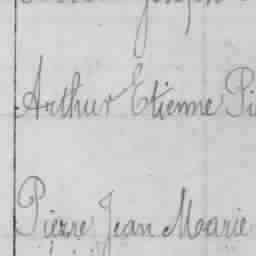 Arthur Etienne Pi
Pierre Jean Marie